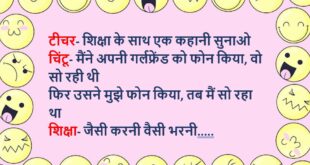 टीचर- शिक्षा के साथ एक कहानी सुनाओ
चिंटू- मैंने अपनी गर्लफ्रेंड को फोन किया, वो
सो रही थी
फिर उसने मुझे फोन किया, तब मैं सो रहा
था
शिक्षा- जैसी करनी वैसी भरनी.....